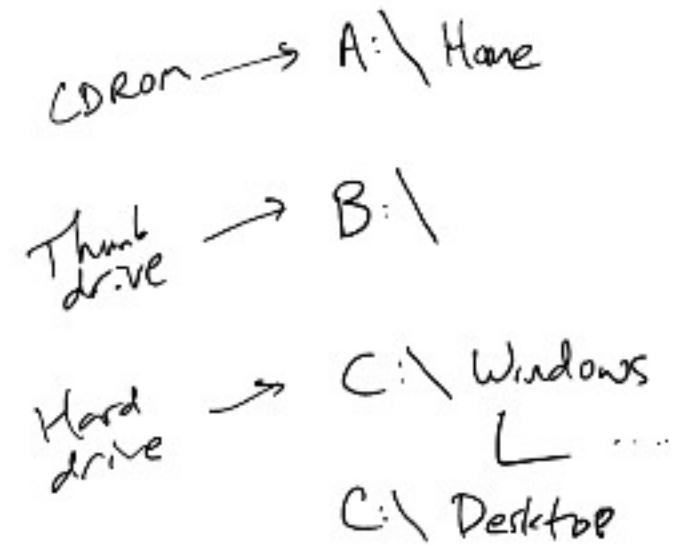 CDROM → A:\ Home
Thumb drive → B:\
Hard drive → C:\ Windows
....
C:\ Desktop